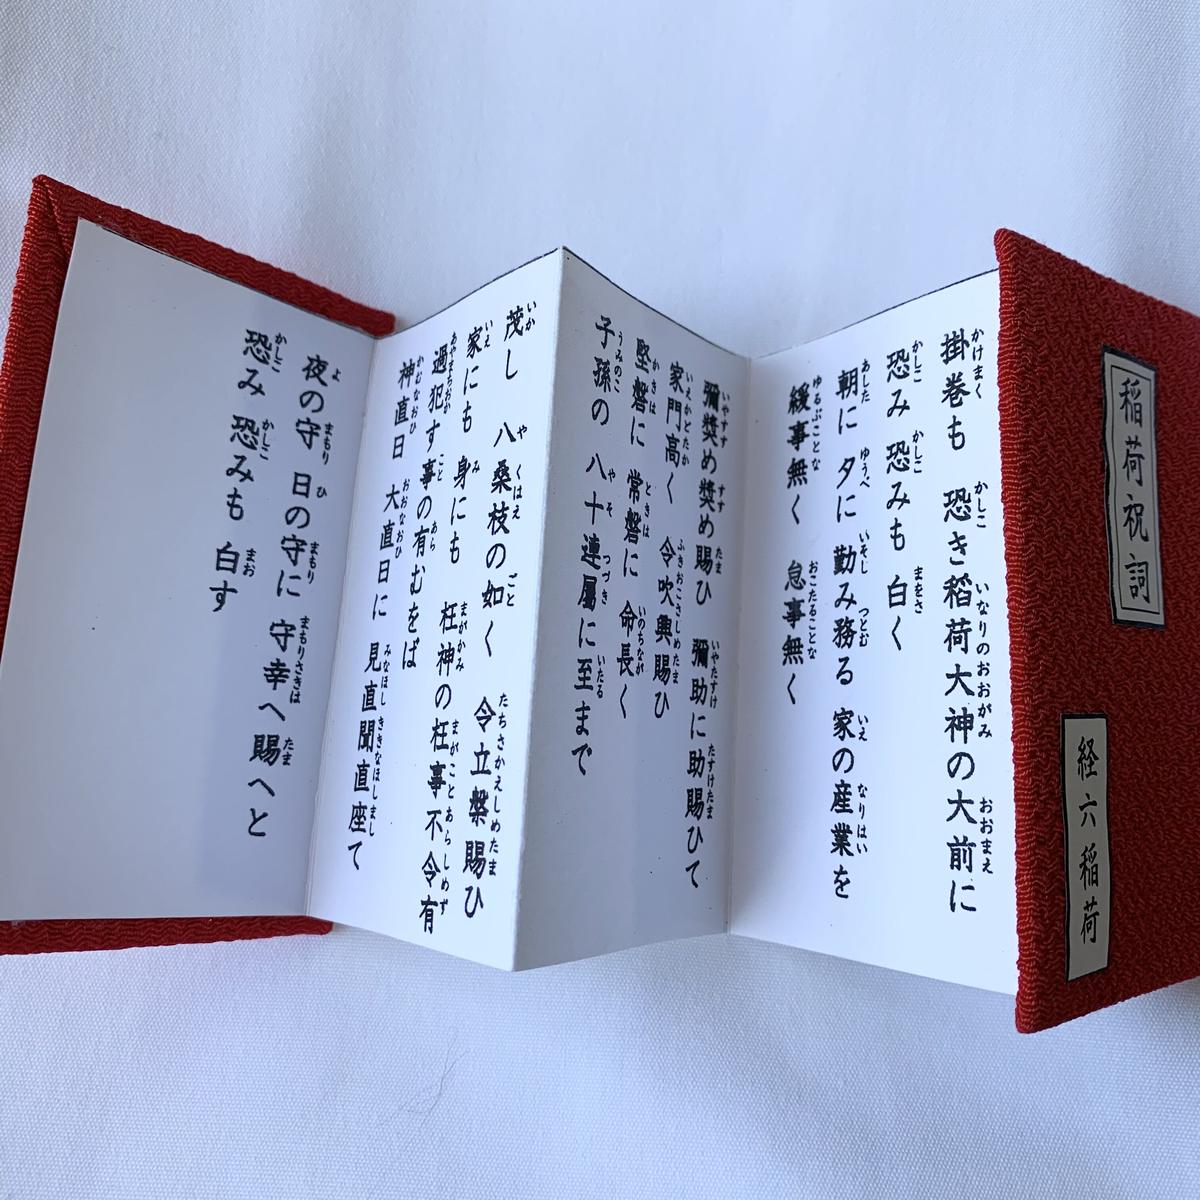 稲荷祝詞
経六稲荷
掛巻も 恐き稲荷大神の大前に
恐み 恐みも 白く
朝に 夕に 勤み務る 家の産業を
緩事無く 怠事無く
彌奨め奨め賜ひ 彌助に助賜ひて
家門高く 令吹興賜ひ
堅磐に 常磐に 命長く
子孫の 八十連屬に至まで
茂し 八桑枝の如く 令立槃賜ひ
家にも 身にも 枉神の枉事不令有
過犯す事の有むをば
神直日 大直日に 見直聞直座て
夜の守 日の守に 守幸へ賜へと
恐み 恐みも 白す